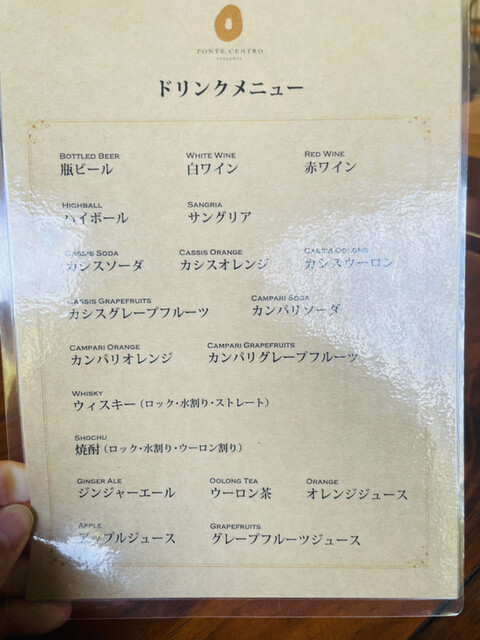 PONTE CENTRO
ドリンクメニュー
BOTTLED BEER WHITE WINE RED WINE
瓶ビール 白ワイン 赤ワイン
HIGHBALL SANGRIA
ハイボール サングリア
CASSIS SODA CASSIS ORANGE CASSIS OOLONG
カシスソーダ カシスオレンジ カシスウーロン
CASSIS GRAPEFRUITS CAMPARI SODA
カシスグレープフルーツ カンパリソーダ
CAMPARI ORANGE CAMPARI GRAPEFRUITS
カンパリオレンジ カンパリグレープフルーツ
WHISKY
ウィスキー（ロック・水割り・ストレート）
SHOCHU
焼酎（ロック・水割り・ウーロン割り）
GINGER ALE OOLONG TEA ORANGE
ジンジャーエール ウーロン茶 オレンジジュース
APPLE GRAPEFRUITS
アップルジュース グレープフルーツジュース